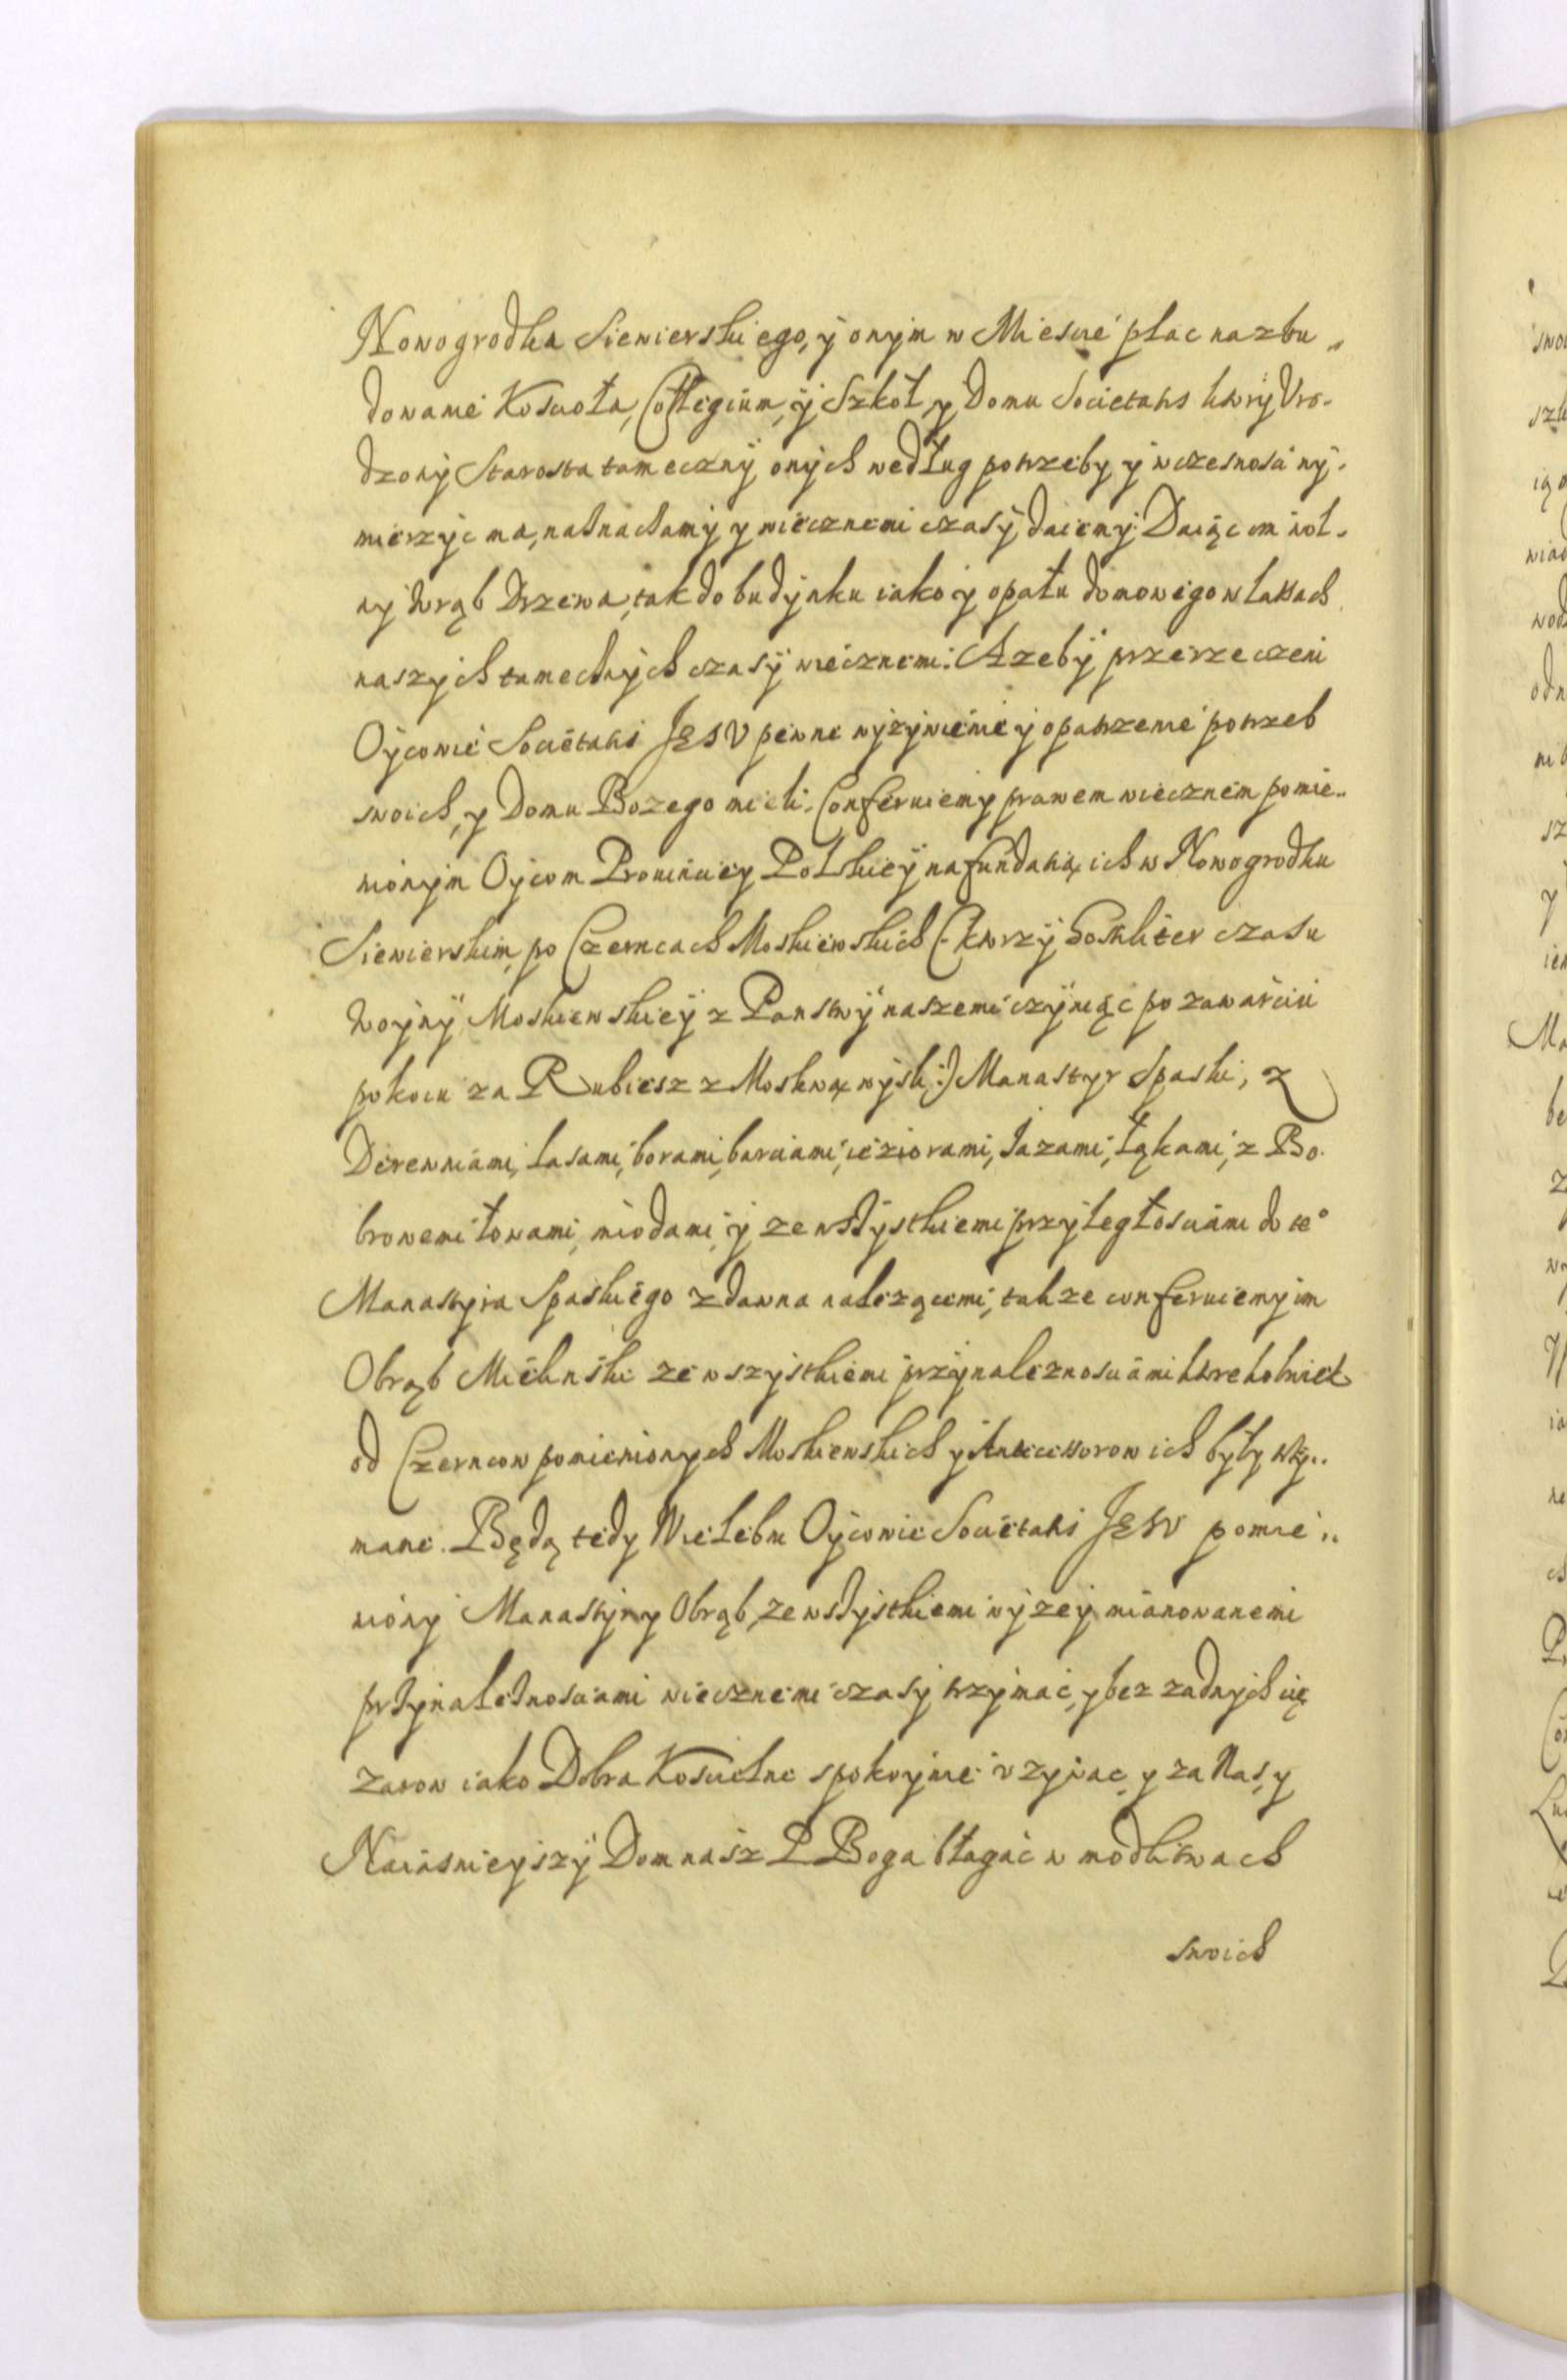 Nowogrodka Siewierskiego, ÿ onÿm w Miescie plac na zbu„
dowanie Kosciola, Collegium, ÿ Szkoł, y Domu Societatis ktorÿ Vro-
dzonÿ Starosta tamecznÿ onÿch według potrzeby ÿ wczesnosci wÿ-
mierzÿc ma, naznaczamÿ y wiecznemi czasÿ daiemÿ. Daiąc im wol-
ny wrąb Drzewa, tak do budÿnku iako ÿ opału domowego w Lassach
naszÿch tamecznÿch czasÿ wiecznemi. A zebÿ przerzeczeni
Oÿcowie Societatis JESV pewne wÿzÿwienie ÿ opatrzenie potrzeb
swoich, y Domu Bozego mieli. Conferuiemy prawem wiecznem pomie„
nionÿm Oÿcom Prowincÿey Polskieÿ na fundatią ich w Nowogrodku
Siewierskim, po Czerncach Moskiewskich (: ktorzÿ hostiliter czasu
woÿnÿ Moskiewskieÿ z Panstwÿ naszemi czÿniąc po zawarciu
pokoiu za Rubiesz z Moskwą wÿsli :) Manastyr Spaski, z
Derewniami, Lasami, borami, barciami, ieziorami, Jazami, Łąkami, z Bo-
browemi łowami, miodami, ÿ ze wszÿstkiemi przÿległosciami do te°
Manastyra Spaskiego zdawna nalezącemi, takze conferuiemy im
Obrąb Mielinski ze wszystkiemi przÿnaleznosciami ktore kolwiek
od Czerncow pomienionych Moskiewskich y Antecessorow ich były trzÿ„
mane. Będą tedy Wielebni Oÿcowie Societatis JESV pomie„
nionÿ Manastyr y Obrąb, ze wszÿstkiemi wÿzeÿ mianowanemi
przÿnaleznosciami wiecznemi czasÿ trzÿmac, y bez zadnÿch cię
zarow iako Dobra Koscielne spokoÿnie vzÿwac, y za Nas, y
Naiasnieyszÿ Dom nasz P. Boga błagac w modlitwach
swoich